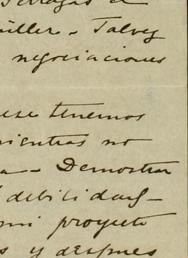 Terrazas a
üller - Talvez
negociaciones
ese tenemos
mientras no
a - Demostrar
debilidad -
mi proyecto
s y despues